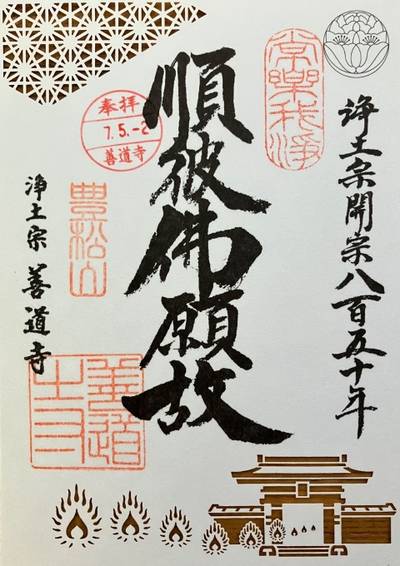 浄土宗開宗八百五十年
常樂我浄
順彼佛願故
奉拝
7.5.-2
善導寺
豊松山
浄土宗 善導寺